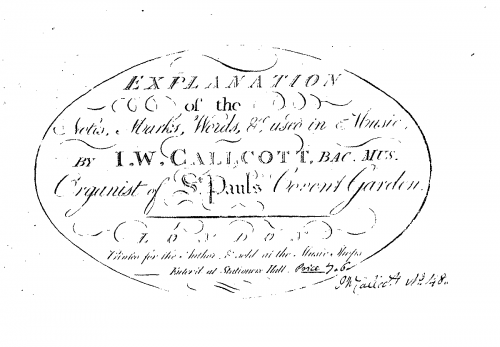 EXPLANATION
of the
Notes, Marks, Words, &c. used in Music,
BY I.W. CALLCOTT, BAC. MUS.
Organist of St. Paul's Covent Garden.
LONDON
Printed for the Author & sold at the Music Shops
Enter'd at Stationers Hall. Price
JWCallcott No. 148